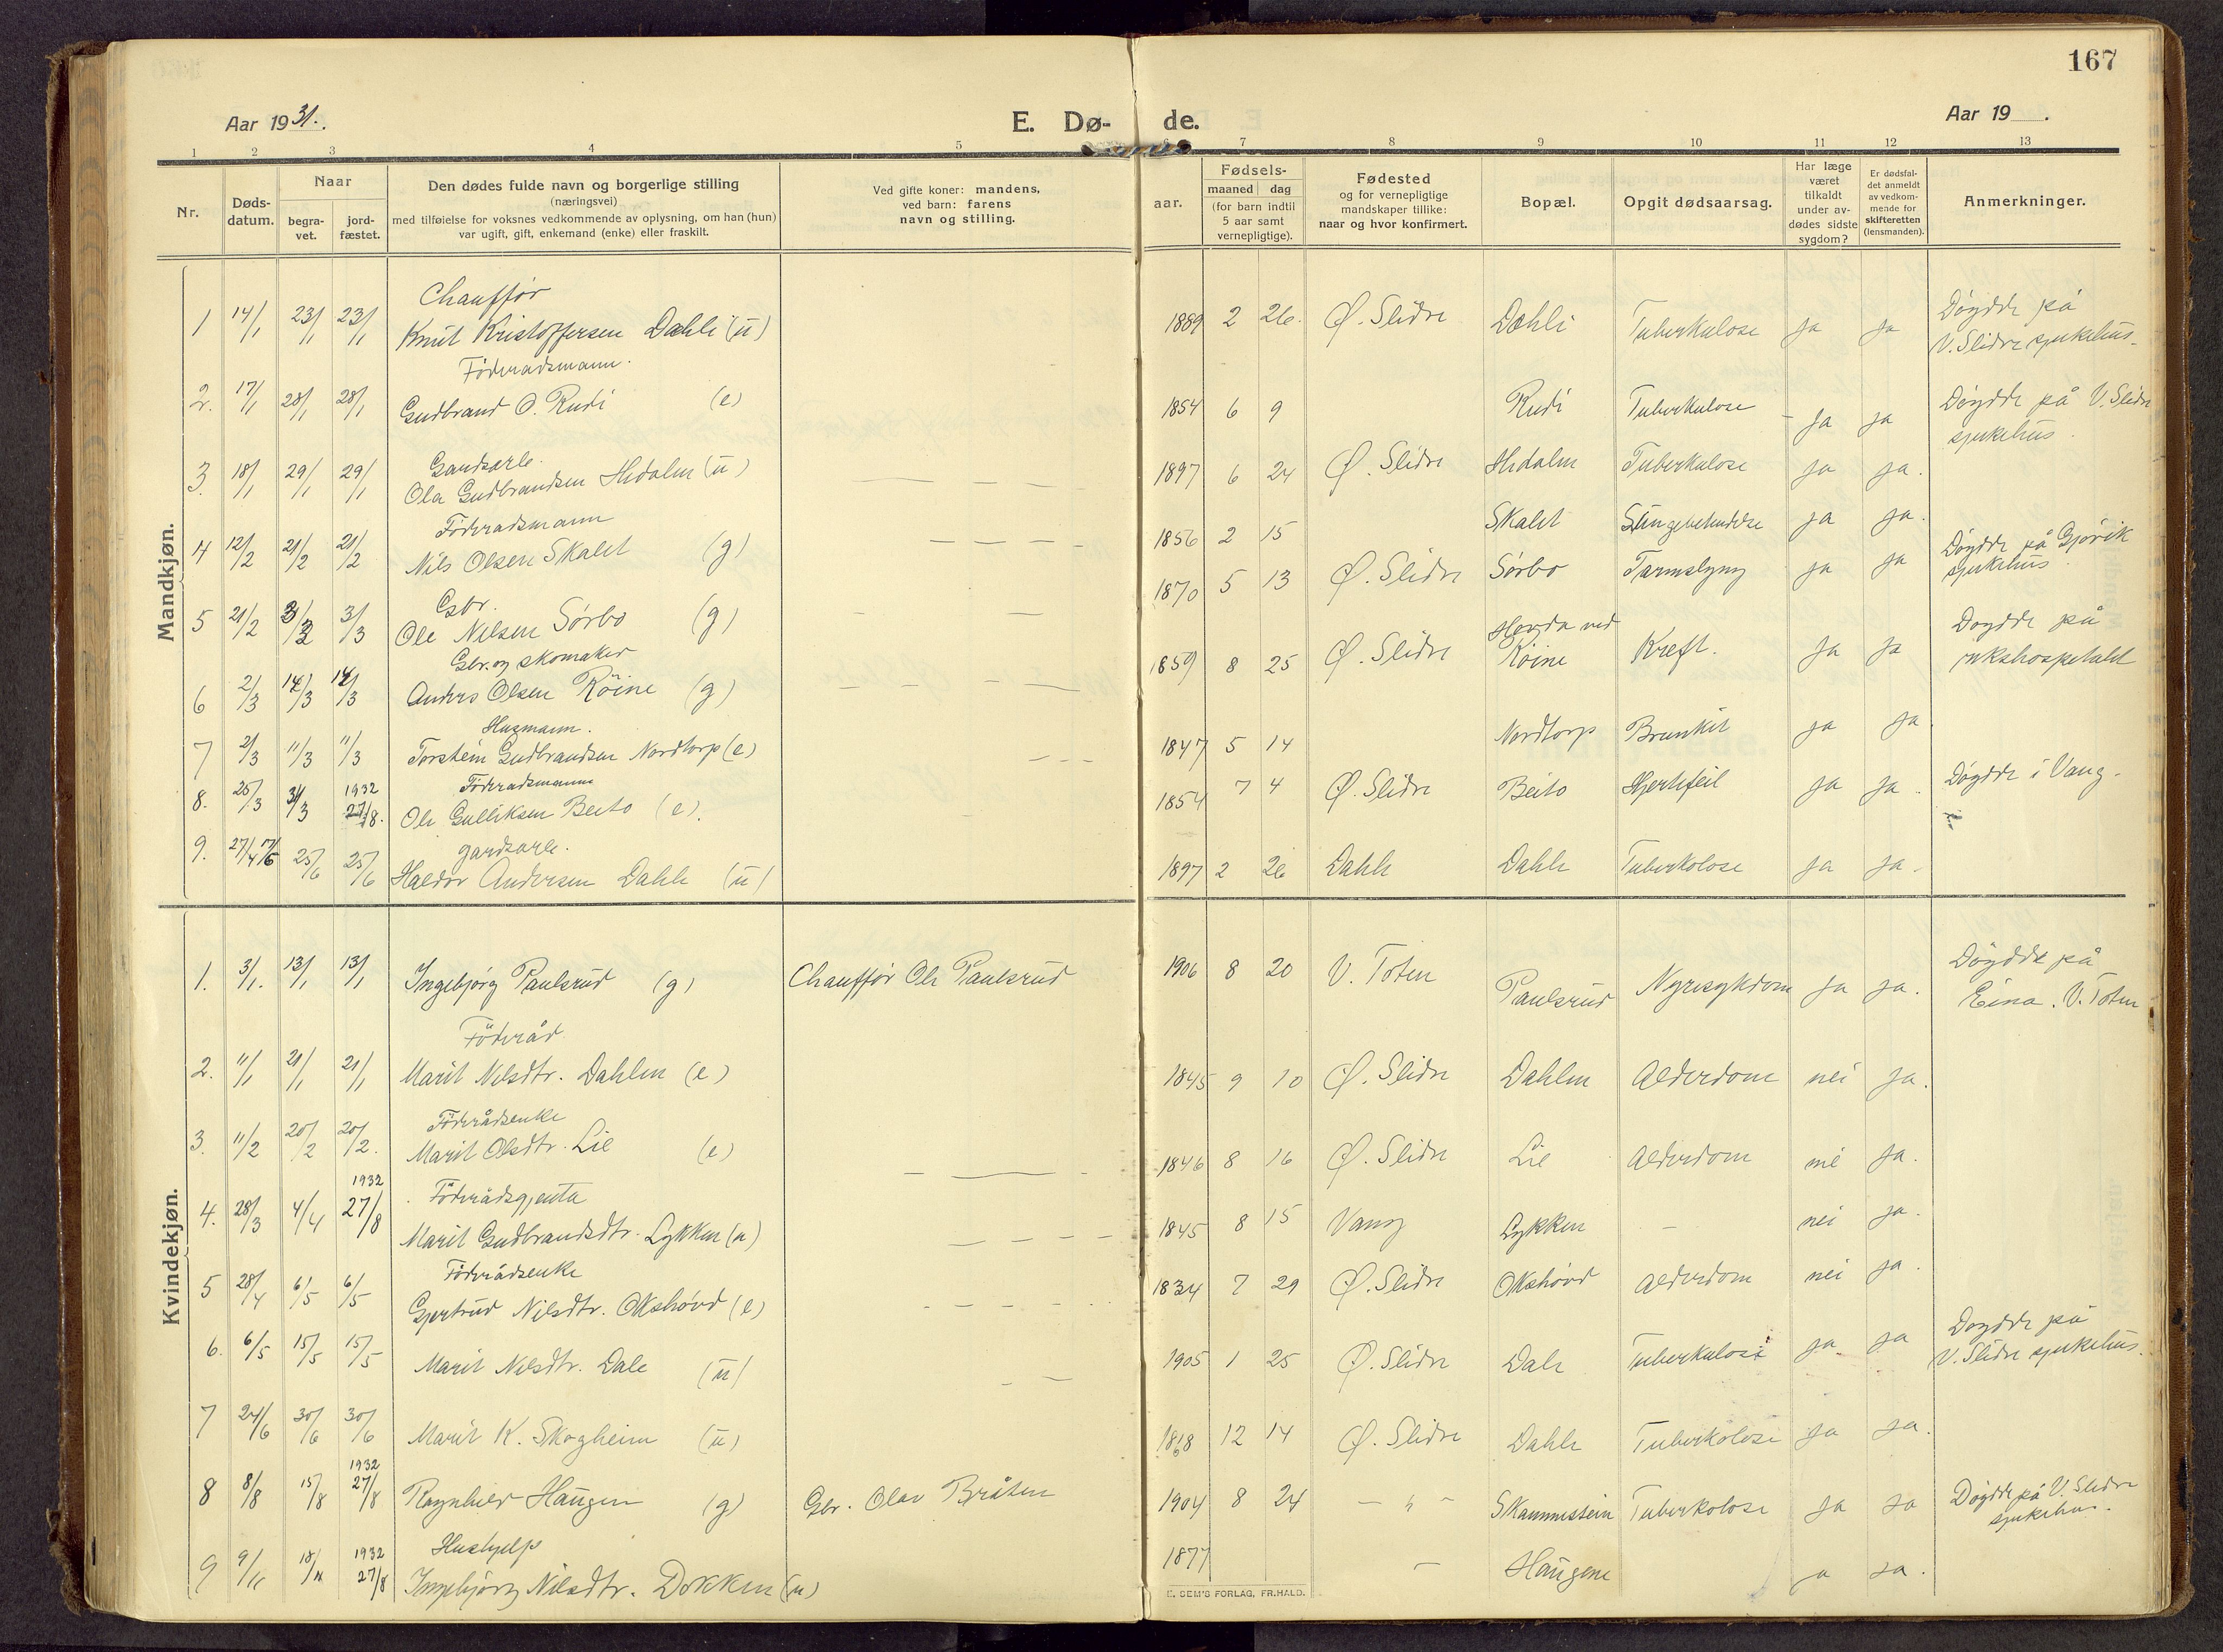 167
Aar 1931.
E. Dø- de.
Aar 19 .
1 2 3 4 5 6 7 8 9 10 11 12 13
Nr.
Døds-
datum.
Naar
begra-
vet.
jord-
fæstet.
Den dødes fulde navn og borgerlige stilling
(næringsvei)
med tilføielse for voksnes vedkommende av oplysning, om han (hun)
var ugift, gift, enkemand (enke) eller fraskilt.
Ved gifte koner: mandens,
ved barn: farens
navn og stilling.
Fødsels-
aar.
maaned dag
(for barn indtil
5 aar samt
vernepligtige).
Fødested
og for vernepligtige
mandskaper tillike:
naar og hvor konfirmert.
Bopæl.
Opgit dødsaarsag.
Har læge
været
tilkaldt
under av-
dødes sidste
sygdom?
Er dødsfal-
det anmeldt
av vedkom-
mende for
skifteretten
(lensmanden).
Anmerkninger.
Mandkjøn.
Chauffør
1 14/1 23/1 23/1 Knut Kristoffersen Dahli (u) 1889 2 26. Ø. Slidre Dahli Tuberkulose ja ja Døydde på
V. Slidre sjukehus.
Föderadsmann.
2. 17/1 28/1 28/1 Gudbrand O. Rudi (e) 1854 6 9 Rudi Tuberkulose - ja ja Døydde på V. Slidre
sjukehus.
Gardsarb.
3. 18/1 29/1 29/1 Ola Gudbrandsen Hedalen (u) — — — 1897 6 24 Ø. Slidre Hedalen Tuberkulose ja ja.
Föderadsmann
4 12/2 21/2 21/2 Nils Olsen Skalet (g) — — — 1856 2 15 Skalet ja ja.
Gbr.
5 21/2 3/3 3/3 Ole Nilsen Sørbo (g) 1870 5 13 Ø. Slidre Sørbo Tarmslyng ja ja Døydde på Gjøvik
sjukehus.
Gbr. og skomaker
6 2/3 14/3 14/3 Anders Olsen Röine (g) — — — 1859 8 25 Ø. Slidre Hovda ved
Röine Kreft. ja ja Døydde på
rikshospitalet
Husmann.
7 2/3 11/3 11/3 Torstein Gudbrandsen Nordtorp (e) — — — 1847 5 14 Nordtorp Brunkit ja ja
Föderadsmann
8. 25/3 31/3 1932 27/8. Ole Gulliksen Beito (e). 1854 7 4 Ø. Slidre Beito Hjertefeil ja ja. Døydde i Vang.
gardsarb.
9. 27/4 25/6 25/6 Haldor Andersen Dahle (u) 1897 2 26 Dahle Dahle Tuberkolose ja ja.
Kvindekjøn.
1. 3/1. 13/1 13/1 Ingebjørg Paulsrud (g) Chauffør Ole Paulsrud 1906 8 20 V. Toten Paulsrud Nyresykdom ja ja. Døydde på
Eina. V. Toten
Föderåd
2. 11/1 21/1 21/1 Marit Nilsdtr. Dahlen (e) 1845 9 10 Ø. Slidre Dahlen Alderdom nei ja.
Föderådsenke
3. 11/2 20/2 20/2. Marit Olsdtr. Lie (e) — — - 1846 8 16 Ø. Slidre Lie Alderdom nei ja.
Föderådsgjenta
4. 28/3 4/4 1932 27/8 Marit Gudbrandsdtr. Lykken (u) — — — — 1845 8 15 Vang Lykken — nei ja.
Föderådsenke
5 28/4 6/5 6/5 Gjertrud Nilsdtr. Okshovd (e) - — — — 1834 7 29 Ø. Slidre Okshovd Alderdom nei ja.
6. 6/5 15/5 15/5 Marit Nilsdtr. Dale (u) — — 1905 1 25 Ø. Slidre Dale Tuberkulose ja. ja Døydde på
V. Slidre sjukehus.
7 24/6 30/6 30/6 Marit K. Skogheim (u) 12 14 Ø. Slidre Dahle Tuberkolose ja ja.
8 8/8 15/8 1932 27/8 Ragnhild Haugen (g) Gbr. Olav Bråten 1904 8 24 — " — Skammestein Tuberkolose ja ja Døydde på V. Slidre
sjukehus.
Hushjelp
9 9/11 18/11 1932 27/8 Ingebjørg Nilsdtr. Dokken (u) 1877 — Haugene ja ja.
E. SEM'S FORLAG, FR.HALD.